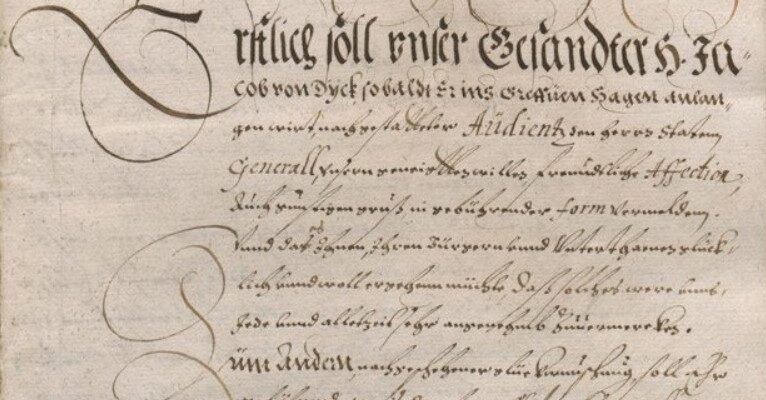 Erstlich soll vnser Gesandter H. Ja-
cob von Dÿck sobaldt Er ins Greffuen Hagen anlan-
gen wirt, nach gestattetter Audientz den Herrn Staten
Generall, vnsern geneigtten willen, freundtliche Affection,
Auch günstigen gruß in gebührender form vermelden.
Vnnd das es Ihnen, Ihren Bürgern vnnd Vnterthanen glück-
lich vnnd woll ergehenn müchte, Daß solches were vnns
Jede vnnd alletzeit sehr angenehmb Zuuermercken.
Zum Andern, nach geschehener glückwünschung, soll ehr